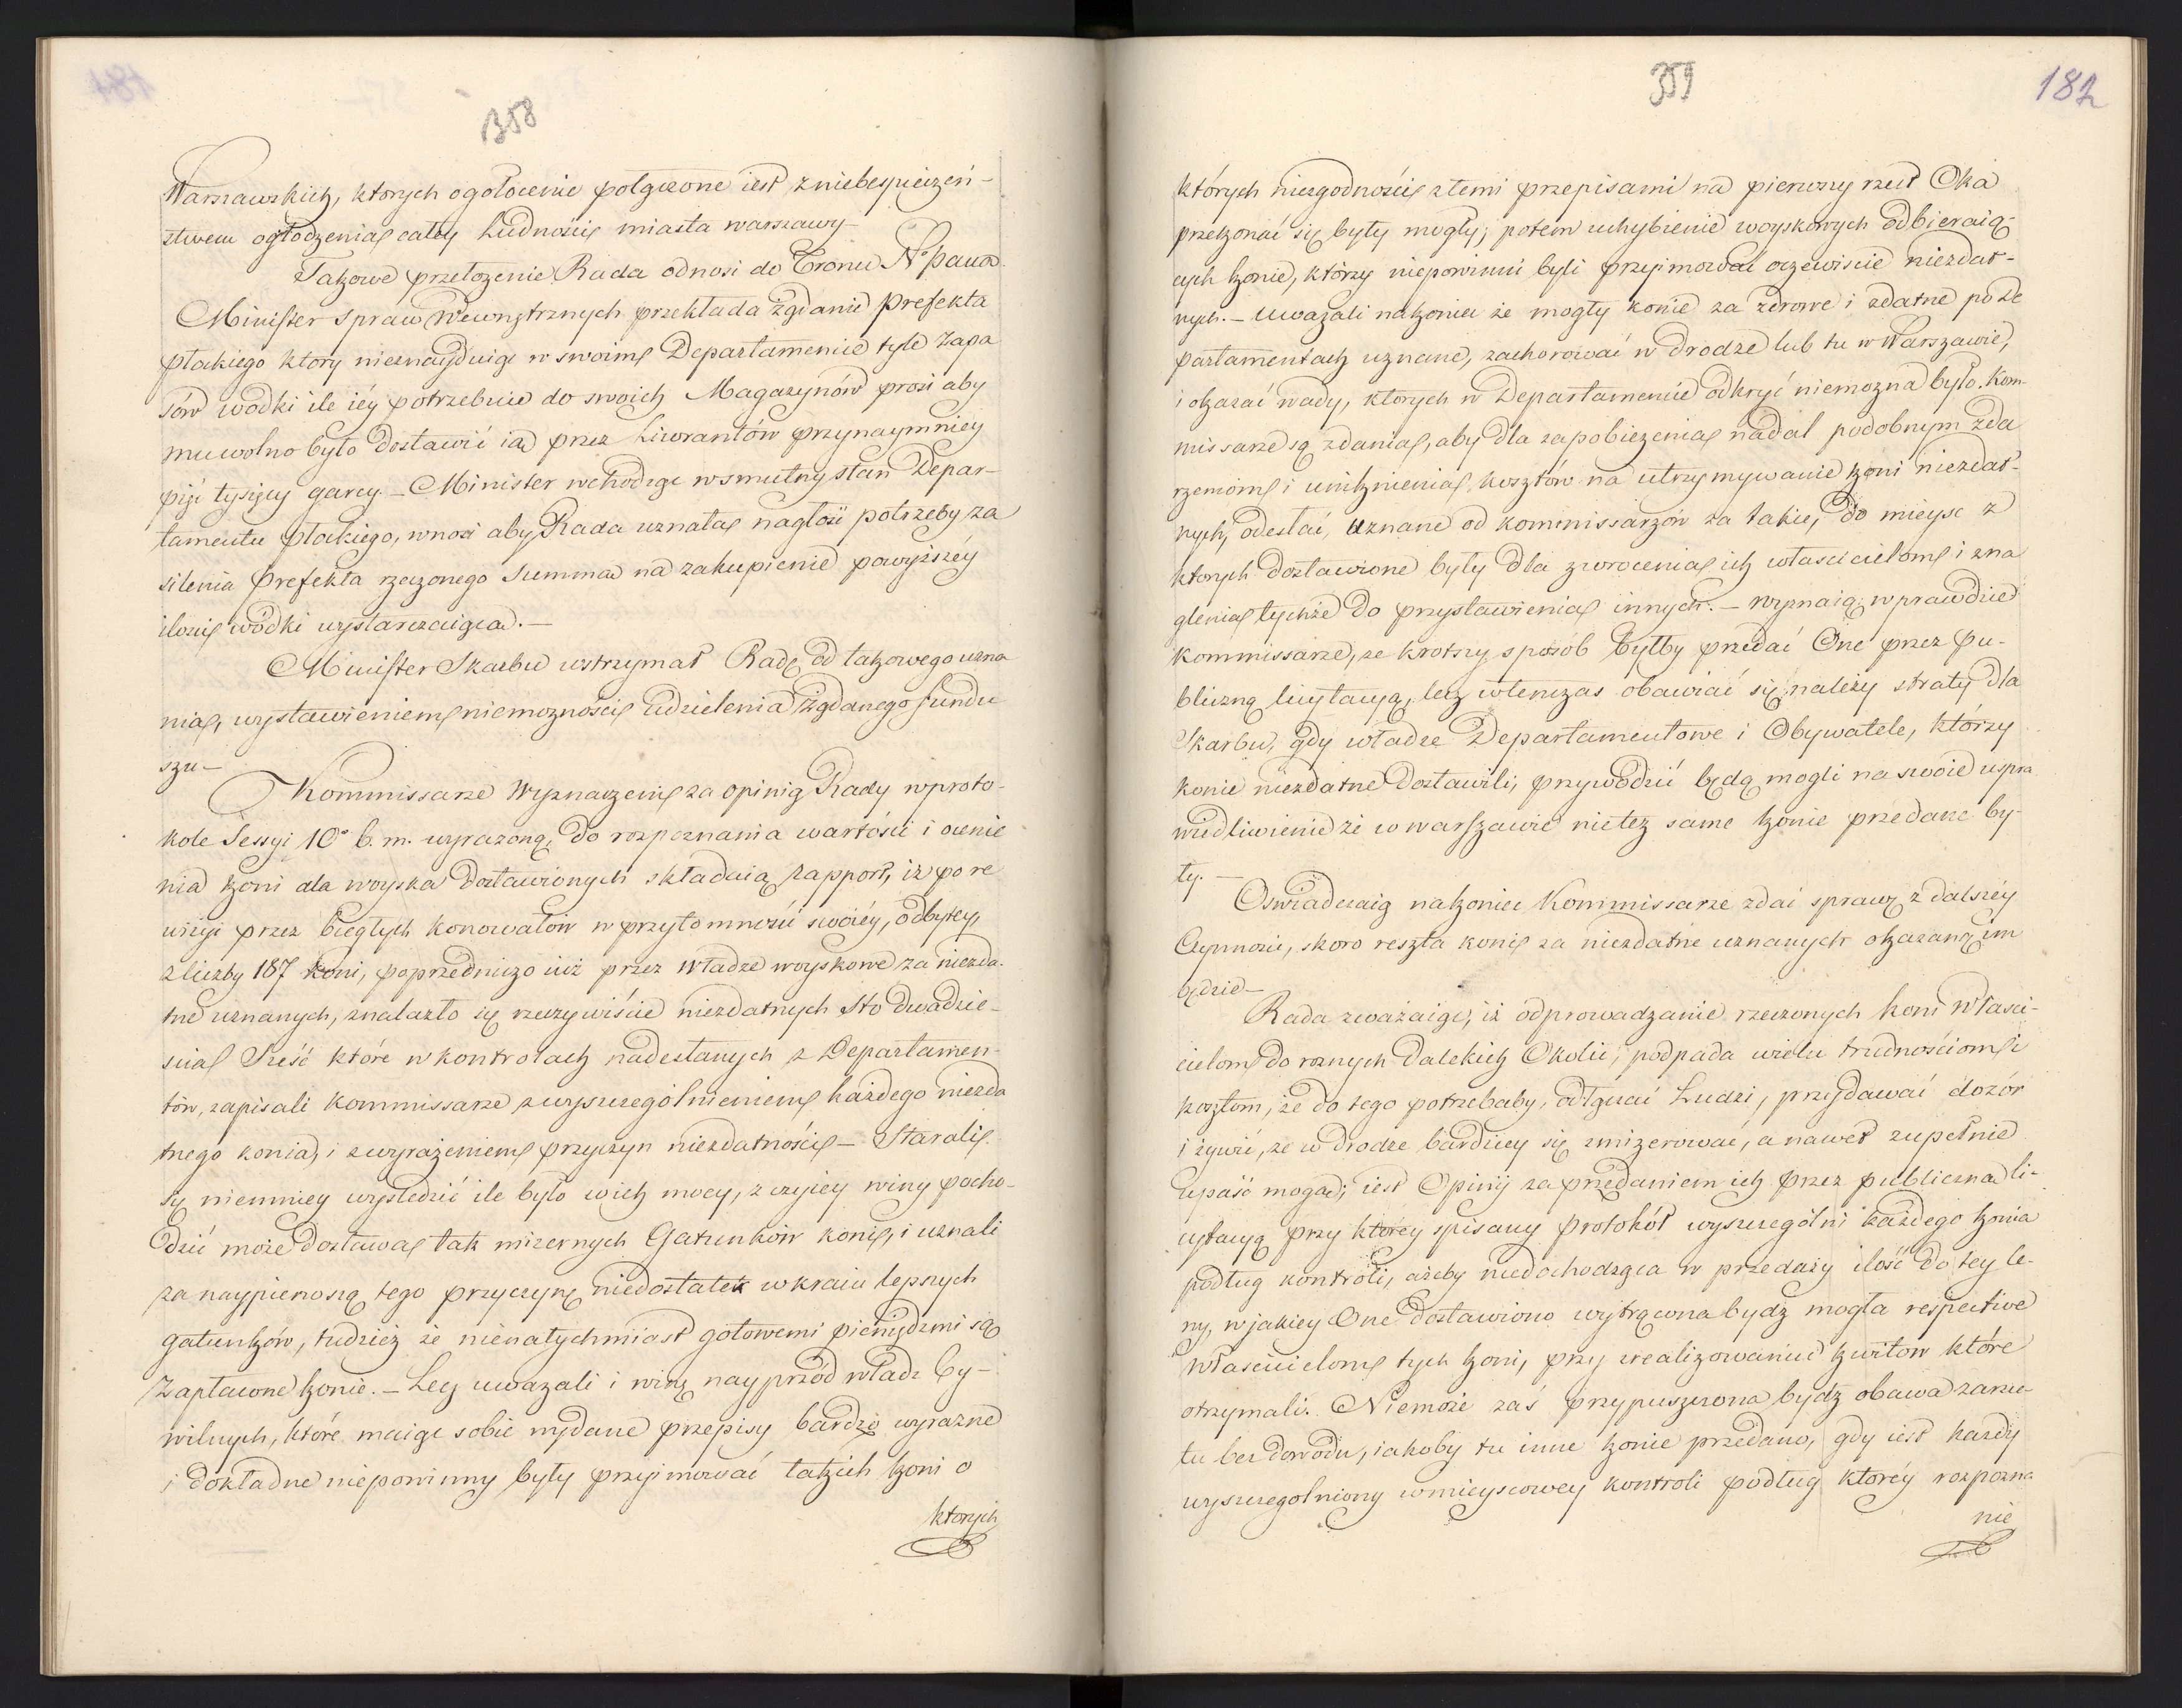 358
Warszawskich, ktorych ogołocenie połączone iest z niebespieczeń-
stwem ogłodzenia całey Ludności miasta warszawy-
Takowe przełożenie Rada odnosi do Tronu N. Pana.
Minister spraw Wewnętrznych przekłada żądanie Prefekta
płockiego ktory nieznayduiąc w swoim Departamencie tyle zapa
sów wodki ile iéy potrzebuie do swoich Magazynów prosi aby
mu wolno było dostawić ią przez Liwrantów przynaymniey
pięć tysięcy garcy. - Minister wchodząc w smutny stan Depar-
tamentu płockiego, wnosi aby Rada uznała nagłość potrzeby za
silenia Prefekta rzeczonego summą na zakupienie powyższéy
ilości wódki wystarczaiącą. -
Minister Skarbu wstrzymał Radę od takowego uzna
nia, wystawieniem niemożności udzielenia żądanego fundu
szu-
Kommissarze Wyznaczeni za opinią Rady w proto-
kole Sessyi 10° b. m. wyrażoną, do rozpoznania wartości i ocenie
nia koni dla woyska dostawionych składaią rapport, iż po re
wizyi przez biegłych konowałów w przytomności swoiéy, odbytey,
z liczby 187 koni, poprzedniczo iuż przez Władze woyskowe za niezda-
tne uznanych, znalazło się rzeczywiście niezdatnych Sto dwadzie-
scia Sześć które w kontrolach nadesłanych z Departamen-
tów, zapisali kommissarze z wyszczególnieniem każdego niezda
tnego konia, i z wyrażeniem przyczyn niezdatności - Starali
się niemniey wyśledzić ile było w ich mocy, z czyiey winy pocho-
dzić może dostawa tak mizernych Gatunków koni, i uznali
za naypierwszą tego przyczynę niedostatek w kraiu lepszych
gatunków, tudzież że nienatychmiast gotowemi pieniędzmi są
Zapłacone konie. - Lecz uwazali i winę nayprzód władz Cy-
wilnych, które maiąc sobie wydane przepisy bardzo wyrazne
i dokładne niepowinny były przyimować takich koni o
ktorych
359
182
których niezgodności z temi przepisami na pierwszy rzut Oka
przekonać się były mogły; potem uchybienie woyskowych odbieraią-
cych konie, którzy niepowinni byli przyimować oczewiscie niezdat-
nych. - Uwazali nakoniec że mogły konie za zdrowe i zdatne po De
partamentach uznane, zachorować w drodze lub tu w Warszawie,
i okazać wady, ktorych w Departamencie odkryć niemożna było. Kom-
missarze są zdania, aby dla zapobieżenia nadal podobnym zda
rzeniom i uniknienia kosztów na utrzymywanie koni niezdat-
nych, odesłać, uznane od kommissarzów za takie, do mieysc z
ktorych dostawione były dla zwrocenia ich własci cielom i zna
glenia tychże do przystawienia innych. - Wyznaią wprawdzie
kommissarze, że krotszy sposób byłby przedać One przez pu-
bliczną licytacyą, lecz wtenczas obawiać się należy straty dla
Skarbu, gdy władze Departamentowe i Obywatele, którzy
konie niezdatne dostawili, przywodzić będą mogli na swoie uspra
wiedliwienie że w warszawie nie też same konie przedane by-
ły. -
Oswiadczaią nakoniec Kommissarze zdać sprawę z dalszéy
Czynności, skoro reszta koni za niezdatne uznanych okazaną im
będzie-
Rada zważaiąc, iż odprowadzanie rzeczonych koni Własci-
cielom do roznych dalekich Okolic, podpada wielu trudnościom i
kosztom, że do tego potrzebaby, odłącać Ludzi, przydawać dozór
i żywić, że w drodze bardziey się zmizerować, a nawet zupełnie
upaść mogą; iest Opinij za przedaniem ich przez publiczną li-
cytacyą przy ktorey spisany protokół wyszczególni każdego konia
podług kontroli, ażeby niedochodząca w przedaży ilość do tey ce-
ny, w jakiey One dostawiono wytrącona bydź mogła respective
Własnicielom tych koni, przy zrealizowaniu kwitow które
otrzymali. Niemoże zaś przypuszczona bydź obawa zarzu-
tu bez dowodu, iakoby tu inne konie przedano, gdy iest każdy
wyszczegolniony w mieyscowey kontroli podług ktoréy rozpozna
nie